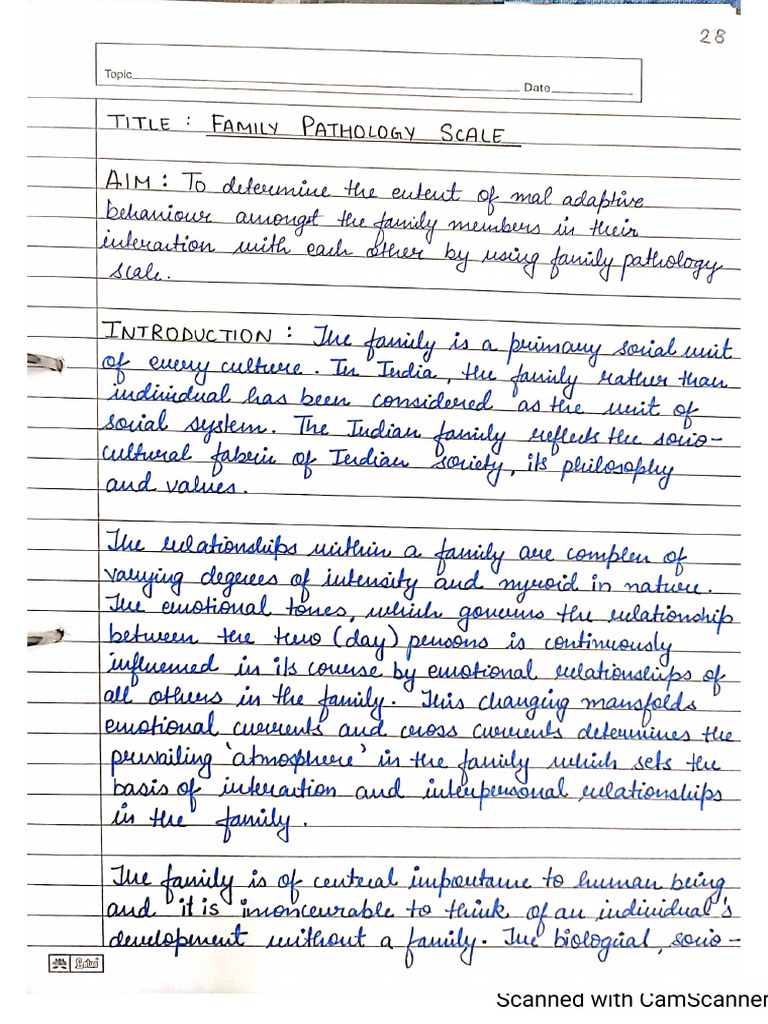 28
Topic
Date
TITLE : FAMILY PATHOLOGY SCALE
AIM : To determine the extent of mal adaptive
behaviour amongst the family members in their
interaction with each other by using family pathology
scale.
INTRODUCTION : The family is a primary social unit
of every culture. In India, the family rather than
individual has been considered as the unit of
social system. The Indian family reflects the socio-
cultural fabric of Indian society, its philosophy
and values.
The relationships within a family are complex of
varying degrees of intensity and myroid in nature.
The emotional tones, which governs the relationship
between the two (day) persons is continuously
influenced in its course by emotional relationships of
all others in the family. This changing mansfolds
emotional currents and cross currents determines the
prevailing 'atmosphere' in the family which sets the
basis of interaction and interpersonal relationships
in the family.
The family is of central importance to human being
and it is inonceurable to think of an individual's
development without a family. The biological, socio-
Scanned with CamScanner